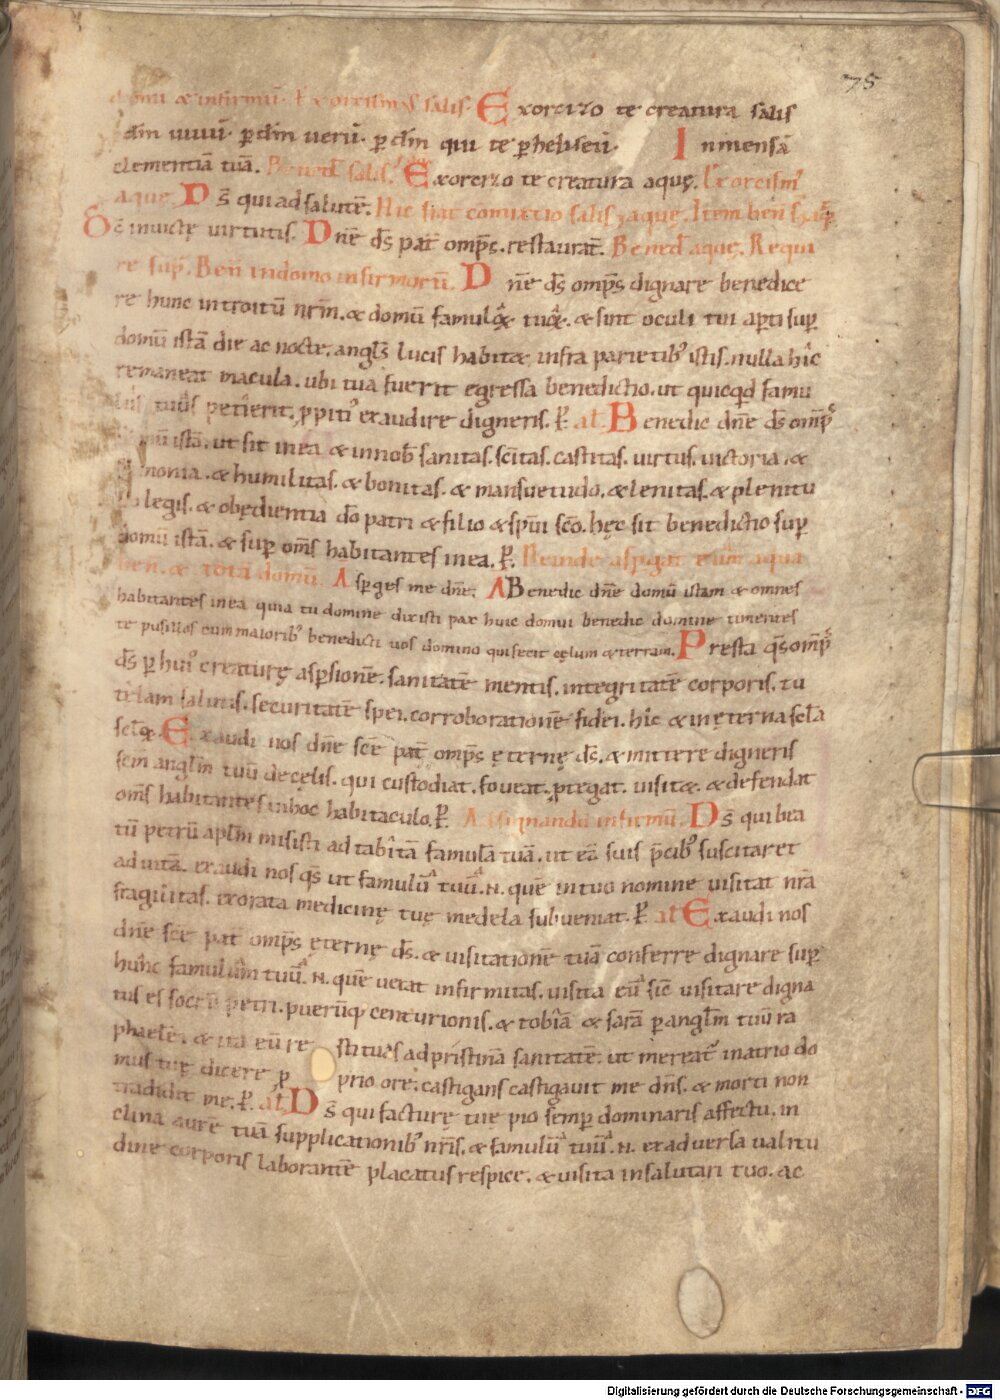 75
domū & infirmū. Exorcismꝰ salis. Exorcizo te creatura salis
dīm uiuū. ꝑ dīm uerū. ꝑ dīm qui te ꝑ heliseū. Inmensā
clementiā tuā. Benedc̄ salis. Exorcizo te creatura aquę. Exorcismꝰ
aque. Ds̄ qui ad salutē. Hic fiat cōmixtio salis ⁊ aquę. Item ben̄ s. ⁊ aq̄
Ds̄ inuictę uirtutis. Dn̄e ds̄ pat̄ omp̄s. restaurat̄. Bened̄ aquę. Requi
re sup̄. Ben̄ in domo infirmorū. Dn̄e ds̄ omp̄s dignare benedice
re hunc introitū nr̄m. & domū famuloꝝ tuoꝝ. & sint oculi tui aꝑti suꝑ
domū istā die ac nocte. angl̄s lucis habitæ infra parietibꝰ istis. nulla hic
remaneat macula. ubi tua fuerit egressa benedictio. ut quicq̄d famu
lus tuus petierit. ꝓpitiꝰ exaudire digneris. ꝑ. al̄. Benedic dn̄e ds̄ omp̄s
domū istā. ut sit in ea & in nob̄ sanitas. sc̄itas. castitas. uirtus. uictoria. &
monia. & humilitas. & bonitas. & mansuetudo. & lenitas. & plenitu
legis. & obędientia dō patri & filio & sp̄ui sc̄o. hęc sit benedictio suꝑ
domū istā. & suꝑ om̄s habitantes in ea. ꝑ. Deinde aspgat eum aqua
ben. & totā domū. Asꝑges me dn̄e. A Benedic dn̄e domū istam & omnes
habitantes in ea quia tu domine dixisti pax huic domui benedic domine timentes
te pusillos cum maioribꝰ benedicti uos domino qui fecit cęlum & terram. Presta qs̄ omp̄s
ds̄ ꝑ huiꝰ creaturę asꝑsionē. sanitatē mentis. integritatē corporis. tu
telam salutis. securitatē spei. corroborationē fidei. hic & in ęterna scl̄a
scl̄oꝝ. Exaudi nos dn̄e sc̄e pat̄ omp̄s ęternę ds̄. & mittere digneris
sc̄m angl̄m tuū de cęlis. qui custodiat. foueat. ꝓtegat. uisitæ. & defendat
om̄s habitantes in hoc habitaculo. ꝑ. Ad signandū infirmū. Ds̄ qui bea
tū petrū apl̄m misisti ad tabitā famulā tuā. ut eā suis p̄cibꝰ suscitaret
ad uitā. exaudi nos qs̄ ut famulū tuū .N. quē in tuo nomine uisitat nr̄a
fragilitas. exorata medicinę tuę medela subueniat. ꝑ. al̄ Exaudi nos
dn̄e sc̄e pat̄ omp̄s ęternę ds̄. & uisitationē tuā conferre dignare suꝑ
hunc famulum tuū .N. quē uexat infirmitas. uisita eū sic̄ uisitare digna
tus es socrū petri. puerūq; centurionis. & tobiā & sarā ꝑ angl̄m tuū ra
phaelē. & ita eū restituas ad pristinā sanitatē. ut mereat̄ in atrio do
mus tuę dicere ꝓprio ore. castigans castigauit me dn̄s. & morti non
tradidit me. ꝑ. al̄. Ds̄ qui facturę tue pio semꝑ dominaris affectu. in
clina aurē tuā supplicationibꝰ nr̄is. & famulū tuū .N. ex aduersa ualitu
dine corporis laborantē placatus respice. & uisita in salutari tuo. ac
Digitalisierung gefördert durch die Deutsche Forschungsgemeinschaft - DFG